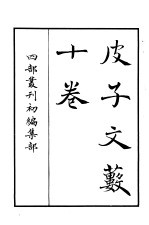 皮子文藪
十卷
四部叢刊初編集部